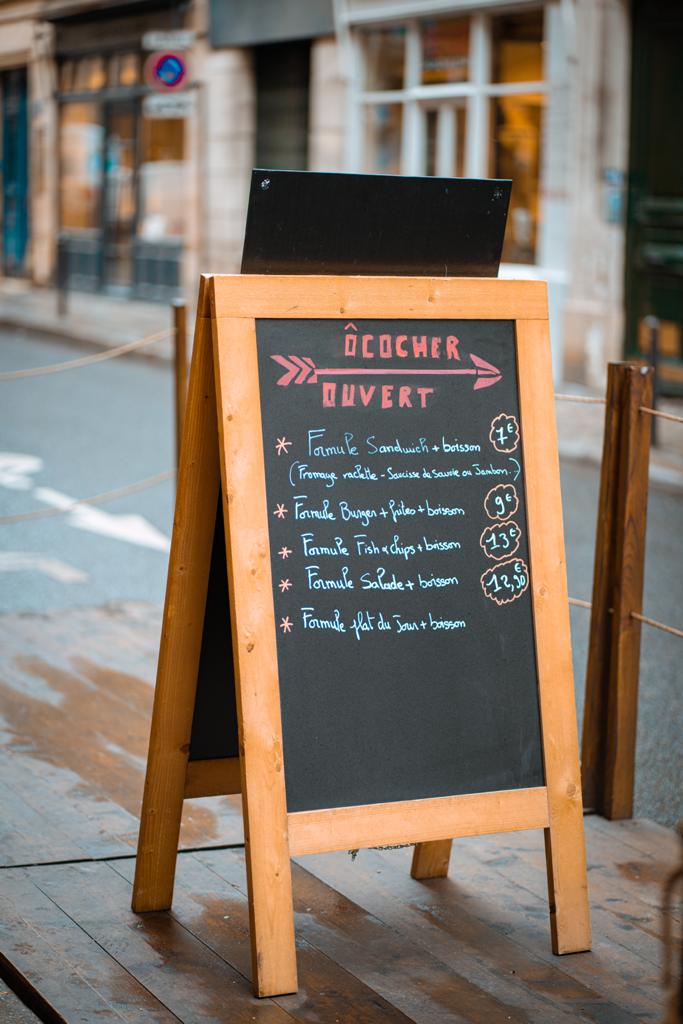 ÔCOCHER
OUVERT
* Formule Sandwich + boisson 7€
(Fromage raclette - Saucisse de Savoie ou Jambon.)
* Formule Burger + frites + boisson 9€
* Formule Fish & chips + boisson 13€
* Formule Salade + boisson 12,90
* Formule plat du Jour + boisson